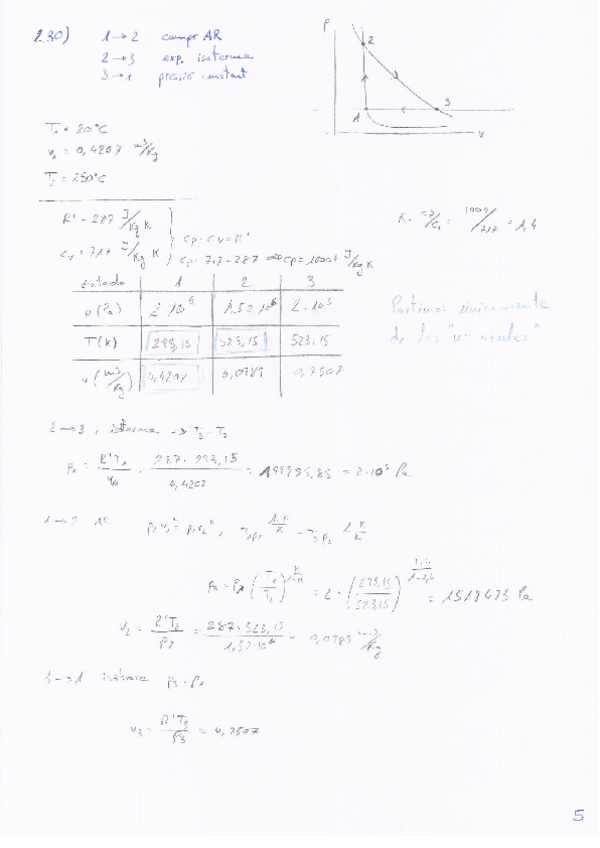 2.30) 1→2 compr AR
2→3 exp. isoterma
3→1 pressió constant
P
2
1
3
v
T₁ = 20°C
v₁ = 0,4207 m³/kg
T₃ = 250°C
R' = 287 J/kg K
cv = 717 J/kg K
cp - cv = R'
cp - 717 = 287 ⇒ cp = 1004 J/kg K
K = cp/cv = 1004/717 = 1,4
Estado 1 2 3
p(Pa) 2·10⁵ 1.52·10⁶ 2·10⁵
T(K) 293,15 523,15 523.15
v (m³/kg) 0,4207 0,0989 0,7507
Partimos únicamente
de los
2→3, isoterma → T₃ = T₂
p₁ = R'T₁/v₁ = 287·293,15/0,4207 = ≈ 2·10⁵ Pa
p₁v₁ᵏ = p₂v₂ᵏ, T₁p₁^(1-K/K) = T₂p₂^(1-K/K)
p₂ = p₁ (T₁/T₂)^(K/1-K) = 2·(293,15/523,15)^(1,4/1-1,4) = 1518473 Pa
v₂ = R'T₂/p₂ = 287·523,15/1,52·10⁶ = 0,0989 m³/kg
3→1 isóbara p₃ = p₁
v₃ = R'T₃/p₃ = 0,7507
5